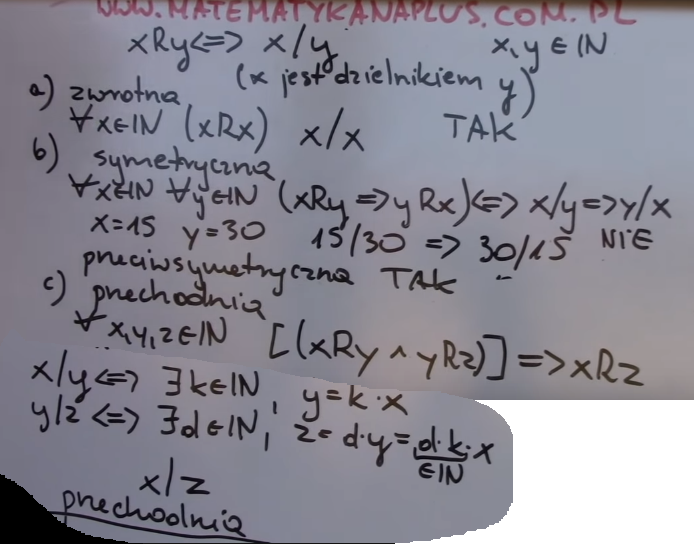 WWW.MATEMATYKANAPLUS.COM.PL
xRy<=> x/y x,y ∈ IN
(x jest dzielnikiem y)
a) zwrotna
∀x∈IN (xRx) x/x TAK
b) symetryczna
∀x∈IN ∀y∈IN (xRy => yRx)<=> x/y=>y/x
x=15 y=30 15/30 => 30/15 NIE
przeciwsymetryczna TAK
c) przechodnia
∀x,y,z∈IN [(xRy ∧ yRz)] => xRz
x/y <=> ∃k∈IN, y=k·x
y/z <=> ∃d∈IN, z=d·y=d·k·x
∈IN
x/z
przechodnia